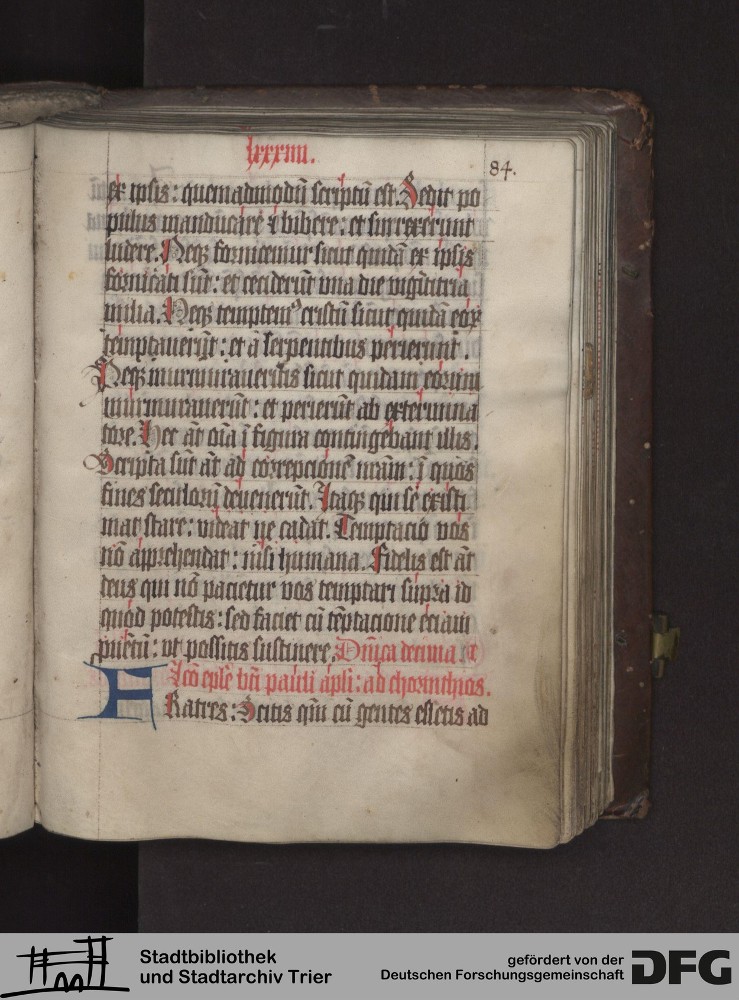 lxxxiiii.
84.
ex ipsis: quemadmodū scriptū est. Sedit po
pulus manducare ⁊ bibere: et surrexerunt
ludere. Neqꝫ fornicemur sicut quidā ex ipsis
fornicati sūt: et ceciderūt vna die vigītitria
milia. Neqꝫ temptemꝰ cristū sicut quidā eoꝝ
temptauerūt: et a serpentibus perierunt.
Neqꝫ murmuraueritis sicut quidam eorum
murmurauerūt: et perierūt ab extermina
tore. Hec āt oīa ī figura contingebant illis.
Scripta sūt āt ad correpcionē nr̄am: ī quos
fines seculorū deuenerūt. Itaqꝫ qui se existi
mat stare: videat ne cadat. Temptacio vos
nō apprehendat: nisi humana. Fidelis est āt
deus qui nō pacietur vos temptari supra id
quod potestis: sed faciet cū tēptacione eciam
puētū: vt possitis sustinere. Dn̄ica decima
lcō ep̄le bt̄i pauli ap̄li: ad chorinthios.
FRatres: Scitis qm̄ cū gentes essetis ad
Stadtbibliothek
und Stadtarchiv Trier
gefördert von der
Deutschen Forschungsgemeinschaft
DFG